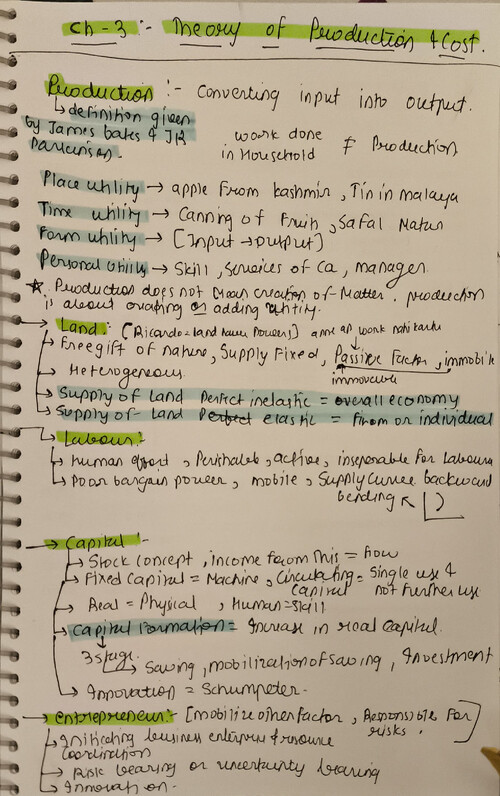 Ch-3 :- Theory of Production & Cost.
Production :- Converting input into output.
↳ definition given
by James bates & JR
Parkinson.
work done
in Household ≠ Production
Place utility → apple from Kashmir, Tin in malaya
Time utility → Canning of Fruit, Safal Matur
Form utility → [Input → Output]
Personal utility → Skill, Services of Ca, manager.
★ Production does not mean creation of Matter. production
is about creating or adding utility.
→ Land : [Ricardo = land have Powers] apne ap work nahi karta
→ Free gift of nature, Supply Fixed, Passive Factor, immobile
immovable
→ Heterogeneous.
→ Supply of land Perfect inelastic = overall economy
→ Supply of land Perfect elastic = firm or individual
→ Labour :-
→ Human effort, Perishable, active, inseparable from Labour
→ Poor bargain power, mobile, Supply curve backward
bending
→ Capital :-
→ Stock Concept, income from this = flow
→ Fixed Capital = Machine, Circulating = Single use &
Capital not further use
→ Real = Physical, Human = Skill
→ Capital Formation = Increase in real capital.
3 stage
↳ Saving, mobilization of saving, Investment
→ Innovation = Schumpeter.
→ entrepreneur :- [mobilize other factor, Responsible for
risks.]
→ Initiating business enterprise & resource
Coordination
→ Risk bearing or uncertainty bearing
→ Innovation.